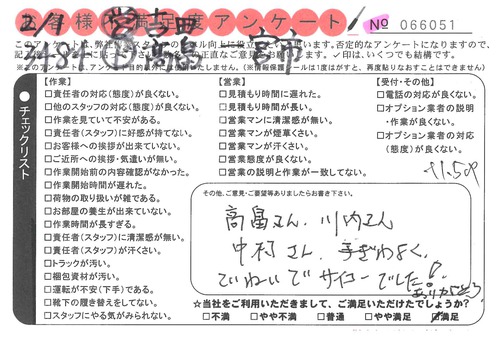 お客様満足度アンケート
No 066051
このアンケートは、弊社
否定的なアンケートになりますので、
✓印は、いくつでも結構です。
※このアンケートは、アンケート目的以外には使用いたしません。(※情報保護シールは1度はがすと、再度貼りなおすことはできません)
チェックリスト
【作業】
□責任者の対応(態度)が良くない。
□他のスタッフの対応(態度)が良くない。
□作業を見ていて不安がある。
□責任者(スタッフ)に好感が持てない。
□お客様への挨拶が出来ていない。
□ご近所への挨拶・気遣いが無い。
□作業開始前の内容確認がなかった。
□作業開始時間が遅れた。
□荷物の取り扱いが雑である。
□お部屋の養生が出来ていない。
□作業時間が長すぎる。
□責任者(スタッフ)に清潔感が無い。
□責任者(スタッフ)が汗くさい。
□トラックが汚い。
□梱包資材が汚い。
□運転が不安(下手)である。
□靴下の履き替えをしてない。
□スタッフにやる気がみられない。
【営業】
□見積もりに遅れた。
□見積もり時間が長い。
□営業マンに清潔感が無い。
□営業マンが煙草くさい。
□営業マンが汗くさい。
□営業態度が良くない。
□営業の説明と作業が一致してない。
【受付・その他】
□電話の対応が良くない。
□オプション業者の説明
・作業が良くない。
□オプション業者の対応
(態度)が良くない。
その他、ご意見・ご要望等ありましたらお書き下さい。
高畠さん 川内さん
中村さん 手ぎわよく、
ていねいでサイコーでした!
ありがとう
☆当社をご利用いただきまして、ご満足いただけたでしょうか?
□不満 □やや不満 □普通 □やや満足 ☑満足